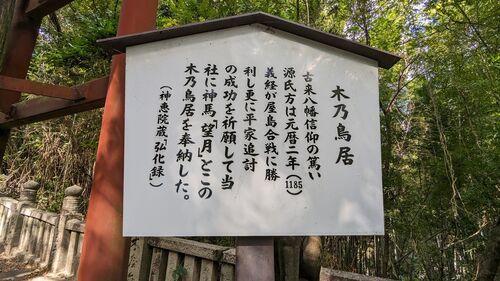 木乃鳥居
古来八幡信仰の篤い
源氏方は元暦二年(1185)
義経が屋島合戦に勝
利し更に平家追討
の成功を祈願して当
社に神馬「望月」とこの
木乃鳥居を奉納した。
(神恵院蔵、弘化録)